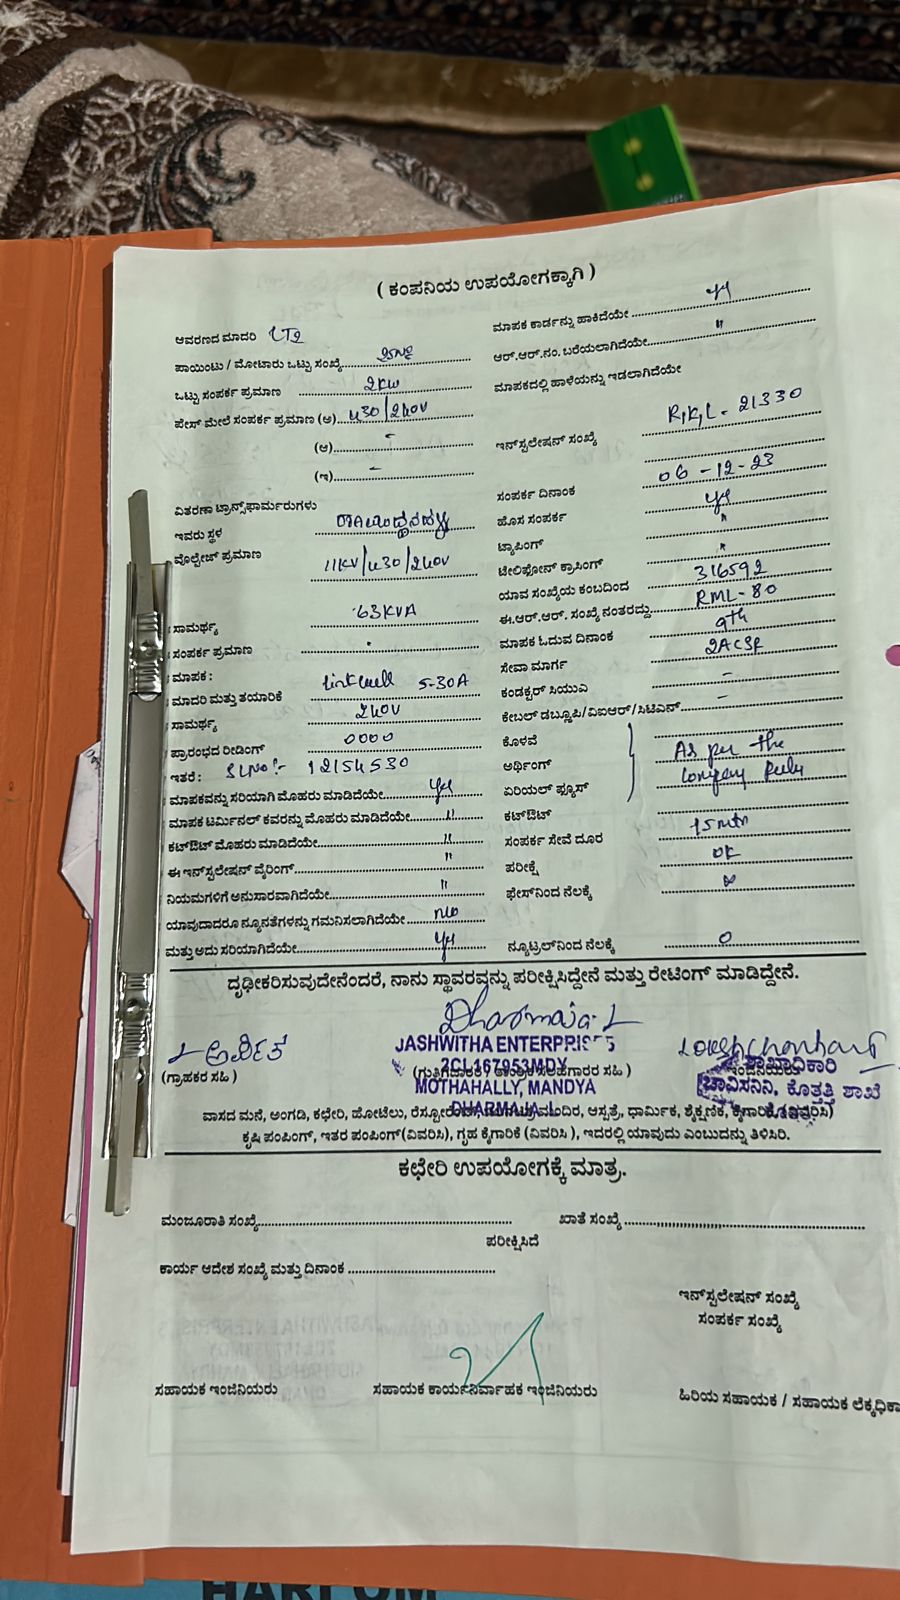 ( ಕಂಪನಿಯ ಉಪಯೋಗಕ್ಕಾಗಿ )
ಆವರಣದ ಮಾದರಿ LT2
ಪಾಯಿಂಟು / ಮೋಟಾರು ಒಟ್ಟು ಸಂಖ್ಯೆ
ಒಟ್ಟು ಸಂಪರ್ಕ ಪ್ರಮಾಣ 2KW
ಫೇಸ್ ಮೇಲೆ ಸಂಪರ್ಕ ಪ್ರಮಾಣ (ಅ) 430/240V
(ಆ) -
(ಇ) -
ವಿತರಣಾ ಟ್ರಾನ್ಸ್‌ಫಾರ್ಮರುಗಳು
ಇವರು ಸ್ಥಳ
ವೊಲ್ಟೇಜ್ ಪ್ರಮಾಣ 11KV/430/240V
ಸಾಮರ್ಥ್ಯ 63KVA
ಸಂಪರ್ಕ ಪ್ರಮಾಣ
ಮಾಪಕ :
ಮಾದರಿ ಮತ್ತು ತಯಾರಿಕೆ 5-30A
ಸಾಮರ್ಥ್ಯ 240V
ಪ್ರಾರಂಭದ ರೀಡಿಂಗ್ 0000
ಇತರೆ : SLNO:- 12154530
ಮಾಪಕವನ್ನು ಸರಿಯಾಗಿ ಮೊಹರು ಮಾಡಿದೆಯೇ yes
ಮಾಪಕ ಟರ್ಮಿನಲ್ ಕವರನ್ನು ಮೊಹರು ಮಾಡಿದೆಯೇ "
ಕಟ್‌ಔಟ್ ಮೊಹರು ಮಾಡಿದೆಯೇ "
ಈ ಇನ್‌ಸ್ಪಲೇಷನ್ ವೈರಿಂಗ್ "
ನಿಯಮಗಳಿಗೆ ಅನುಸಾರವಾಗಿದೆಯೇ "
ಯಾವುದಾದರೂ ನ್ಯೂನತೆಗಳನ್ನು ಗಮನಿಸಲಾಗಿದೆಯೇ no
ಮತ್ತು ಅದು ಸರಿಯಾಗಿದೆಯೇ yes
ಮಾಪಕ ಕಾರ್ಡನ್ನು ಹಾಕಿದೆಯೇ yes
ಆರ್.ಆರ್.ನಂ. ಬರೆಯಲಾಗಿದೆಯೇ "
ಮಾಪಕದಲ್ಲಿ ಹಾಳೆಯನ್ನು ಇಡಲಾಗಿದೆಯೇ
ಇನ್‌ಸ್ಪಲೇಷನ್ ಸಂಖ್ಯೆ 21330
ಸಂಪರ್ಕ ದಿನಾಂಕ 06-12-23
ಹೊಸ ಸಂಪರ್ಕ yes
ಟ್ಯಾಪಿಂಗ್
ಟೆಲಿಫೋನ್ ಕ್ರಾಸಿಂಗ್
ಯಾವ ಸಂಖ್ಯೆಯ ಕಂಬದಿಂದ 316592
ಈ.ಆರ್.ಆರ್. ಸಂಖ್ಯೆ ನಂತರದ್ದು RML-80
ಮಾಪಕ ಓದುವ ದಿನಾಂಕ 9th
ಸೇವಾ ಮಾರ್ಗ 2ACSR
ಕಂಡಕ್ಟರ್ ಸಿಯುವಿ -
ಕೇಬಲ್ ಡಬ್ಲ್ಯೂಪಿ/ವಿಐಆರ್/ಸಿಟಿಎನ್ -
ಕೊಳವೆ
ಅರ್ಥಿಂಗ್ As per the
ಏರಿಯಲ್ ಫ್ಯೂಸ್ Company Rules
ಕಟ್‌ಔಟ್
ಸಂಪರ್ಕ ಸೇವೆ ದೂರ 15 mtr
ಪರೀಕ್ಷೆ OK
ಫೇಸ್‌ನಿಂದ ನೆಲಕ್ಕೆ ∞
ನ್ಯೂಟ್ರಲ್‌ನಿಂದ ನೆಲಕ್ಕೆ 0
ದೃಢೀಕರಿಸುವುದೇನೆಂದರೆ, ನಾನು ಸ್ಥಾವರವನ್ನು ಪರೀಕ್ಷಿಸಿದ್ದೇನೆ ಮತ್ತು ರೇಟಿಂಗ್ ಮಾಡಿದ್ದೇನೆ.
Dharmaja. L
JASHWITHA ENTERPRISES
2CL167953MDY
MOTHAHALLY, MANDYA
DHARMAJA. L
(ಗ್ರಾಹಕರ ಸಹಿ )
ಶಾಖಾಧಿಕಾರಿ
ಚಾವಿಸನಿನಿ, ಕೊತ್ತತ್ತಿ ಶಾಖೆ
ವಾಸದ ಮನೆ, ಅಂಗಡಿ, ಕಛೇರಿ, ಹೋಟೆಲು, ಮಂದಿರ, ಆಸ್ಪತ್ರೆ, ಧಾರ್ಮಿಕ, ಶೈಕ್ಷಣಿಕ, ಕೈಗಾರಿಕೆ (ವಿವರಿಸಿ)
ಕೃಷಿ ಪಂಪಿಂಗ್, ಇತರ ಪಂಪಿಂಗ್(ವಿವರಿಸಿ), ಗೃಹ ಕೈಗಾರಿಕೆ (ವಿವರಿಸಿ ), ಇದರಲ್ಲಿ ಯಾವುದು ಎಂಬುದನ್ನು ತಿಳಿಸಿರಿ.
ಕಛೇರಿ ಉಪಯೋಗಕ್ಕೆ ಮಾತ್ರ.
ಮಂಜೂರಾತಿ ಸಂಖ್ಯೆ ಖಾತೆ ಸಂಖ್ಯೆ
ಪರೀಕ್ಷಿಸಿದೆ
ಕಾರ್ಯ ಆದೇಶ ಸಂಖ್ಯೆ ಮತ್ತು ದಿನಾಂಕ
ಇನ್‌ಸ್ಪಲೇಷನ್ ಸಂಖ್ಯೆ
ಸಂಪರ್ಕ ಸಂಖ್ಯೆ
ಸಹಾಯಕ ಇಂಜಿನಿಯರು ಸಹಾಯಕ ಕಾರ್ಯನಿರ್ವಾಹಕ ಇಂಜಿನಿಯರು ಹಿರಿಯ ಸಹಾಯಕ / ಸಹಾಯಕ ಲೆಕ್ಕಧಿಕಾ
HARI OM